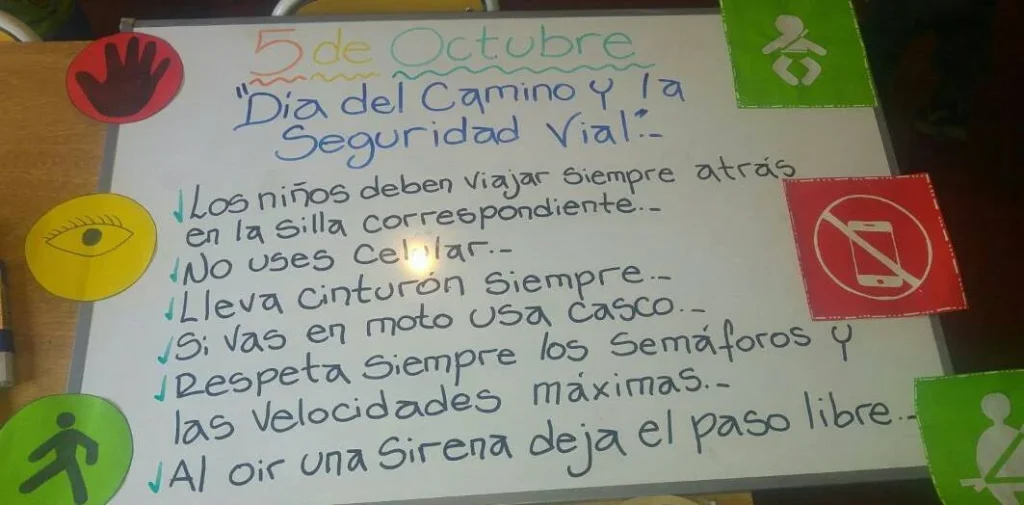 5 de Octubre
"Día del Camino y la
Seguridad Vial".-
✓Los niños deben viajar siempre atrás
en la silla correspondiente.-
✓No uses celular.-
✓Lleva cinturón siempre.-
✓Si vas en moto usa casco.-
✓Respeta siempre los semáforos y
las velocidades máximas.-
✓Al oir una sirena deja el paso libre.-